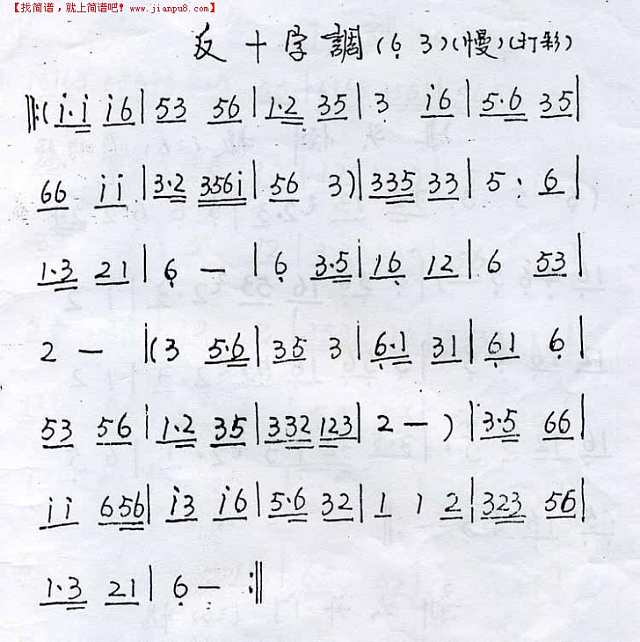 【找简谱，就上简谱吧！www.jianpu8.com】
反十字調(6̣ 3)(慢)(打彩)
‖:(i·i i6|53 56|1·2 35|3 i6|5·6 35|
66 ii|3·2 356i|56 3)|335 33|5· 6|
1·3 21|6̣ —|6̣ 3·5|16̣ 12|6 53|
2 —|(3 5·6|35 3|6̣·1 31|6̣1 6̣|
53 56|1·2 35|332 123|2 —)|3·5 66|
ii 656|i3 i6|5·6 32|1 1 2|323 56|
1·3 21|6̣ — :‖